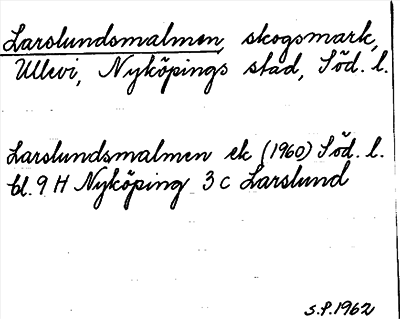 Larslundsmalmen, skogsmark,
Ullevi, Nyköpings stad, Söd. l.
Larslundsmalmen ek (1960) Söd. l.
bl. 9 H Nyköping 3 c Larslund
S.P.1962